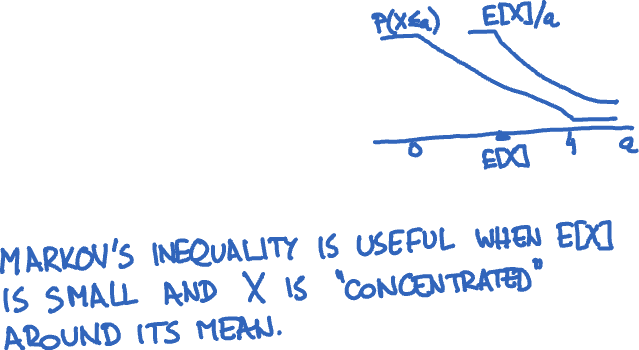 P(X≤a) E[X]/a
0 E[X] 4 a
MARKOV'S INEQUALITY IS USEFUL WHEN E[X]
IS SMALL AND X IS "CONCENTRATED"
AROUND ITS MEAN.